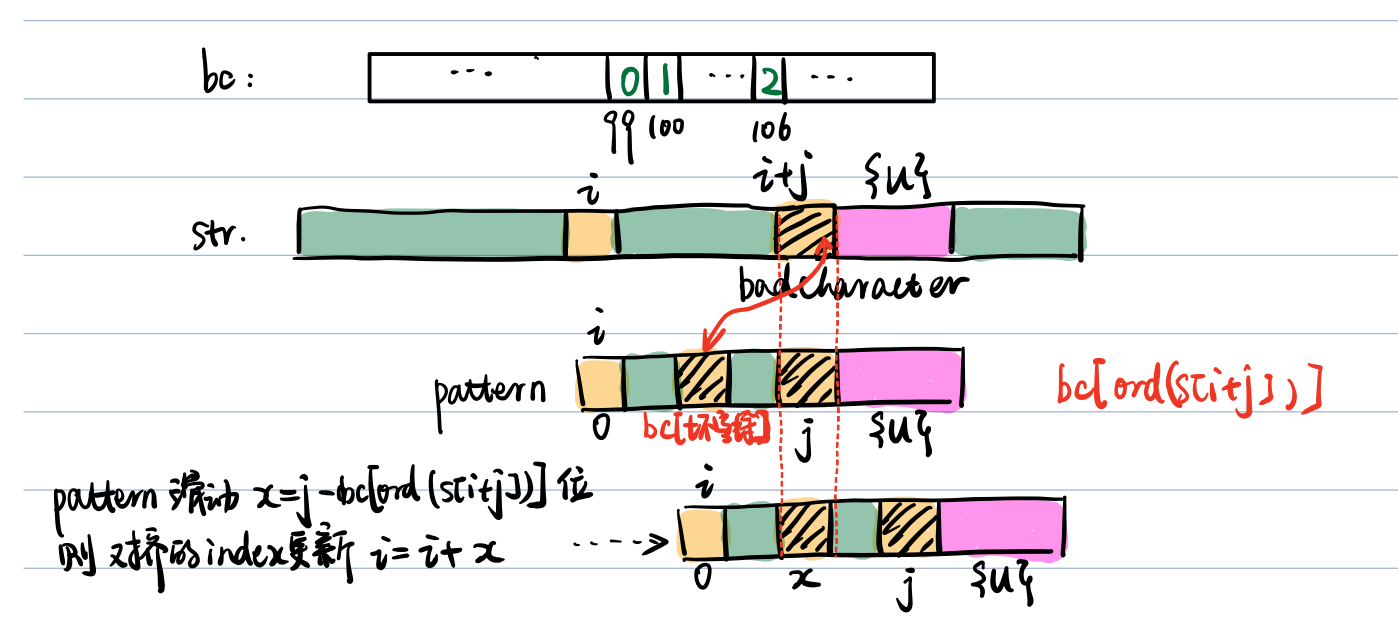 bc:
... 0 1 ... 2 ...
99 100 106
i i+j {u}
str.
badcharacter
i
pattern
bc[ord(s[i+j])]
0 bc[坏字符] j {u}
pattern 滑动 x=j-bc[ord(s[i+j])]位
i
则 对齐的index更新 i=i+x
0 x j {u}